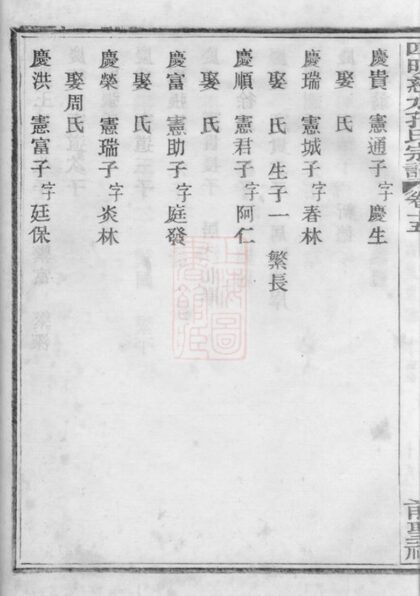 慶貴 憲通子 字慶生
慶 娶 氏
慶瑞 憲城子 字春林
慶 娶 氏 生子一 繁長
慶順 憲君子 字阿仁
慶 娶 氏
慶富 憲助子 字庭發
慶 娶 氏
慶榮 憲瑞子 字炎林
慶 娶周氏
慶洪 憲富子 字廷保
孔氏宗譜 卷五
上海圖書館藏